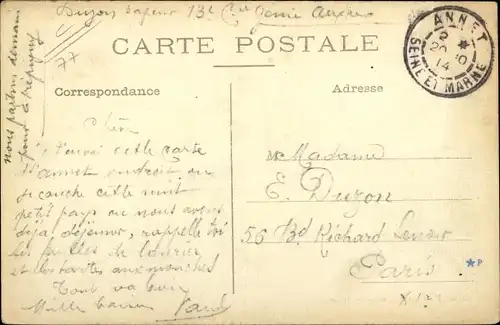 Duzon Sapeur 13e Cie Génie
77
CARTE POSTALE
ANNET
SEINE ET MARNE
20 14
Correspondance
Adresse
Nous partons demain
pour
Chère
Je t'envoi cette carte
d'Annet endroit ou
je couche cette nuit
petit pays ou nous avons
déjà déjeuner, rappelle toi
les feuilles de laurier
et les tartes aux mouches
Tout va bien
Mille baisers Paul
Madame
E. Duzon
56 Bd Richard Lenoir
Paris
*P
XI